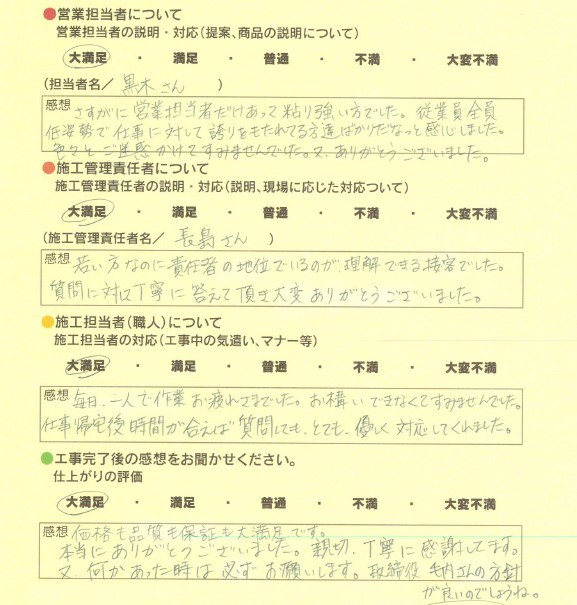 ●営業担当者について
営業担当者の説明・対応(提案、商品の説明について)
大満足 ・ 満足 ・ 普通 ・ 不満 ・ 大変不満
(担当者名/ 黒木さん )
感想 さすがに営業担当者だけあって粘り強い方でした。従業員全員
低姿勢で仕事に対して誇りをもたれてる方達ばかりだなっと感心しました。
色々とご迷惑かけてすみませんでした。又、ありがとうございました。
●施工管理責任者について
施工管理責任者の説明・対応(説明、現場に応じた対応ついて)
大満足 ・ 満足 ・ 普通 ・ 不満 ・ 大変不満
(施工管理責任者名/ 長島さん )
感想 若い方なのに責任者の地位でいるのが理解できる接客でした。
質問に対して丁寧に答えて頂き大変ありがとうございました。
●施工担当者(職人)について
施工担当者の対応(工事中の気遣い、マナー等)
大満足 ・ 満足 ・ 普通 ・ 不満 ・ 大変不満
感想 毎日、一人で作業お疲れさまでした。お構いできなくてすみませんでした。
仕事帰宅後時間が合えば質問しても、とても、優しく対応してくれました。
●工事完了後の感想をお聞かせください。
仕上がりの評価
大満足 ・ 満足 ・ 普通 ・ 不満 ・ 大変不満
感想 価格も品質も保証も大満足です。
本当にありがとうございました。親切、丁寧に感謝してます。
又、何かあった時は必ずお願いします。取締役 毛内さんの方針
が良いのでしょうね。